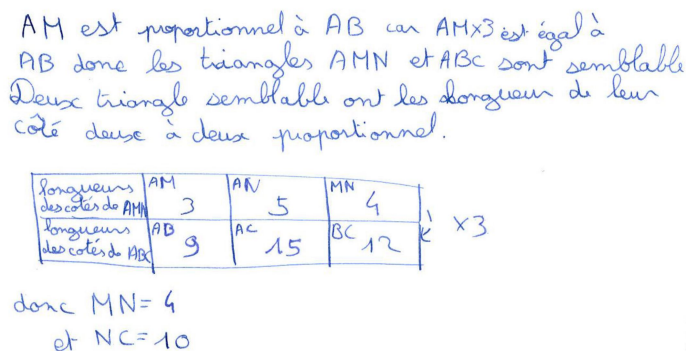 AM est proportionnel à AB car AM×3 est égal à
AB donc les triangles AMN et ABC sont semblable
Deux triangle semblable ont les longueur de leur
côté deux à deux proportionnel.
longueurs des cotés de AMN AM 3 AN 5 MN 4
longueurs des cotés de ABC AB 9 AC 15 BC 12 ×3
donc MN = 4
et NC = 10